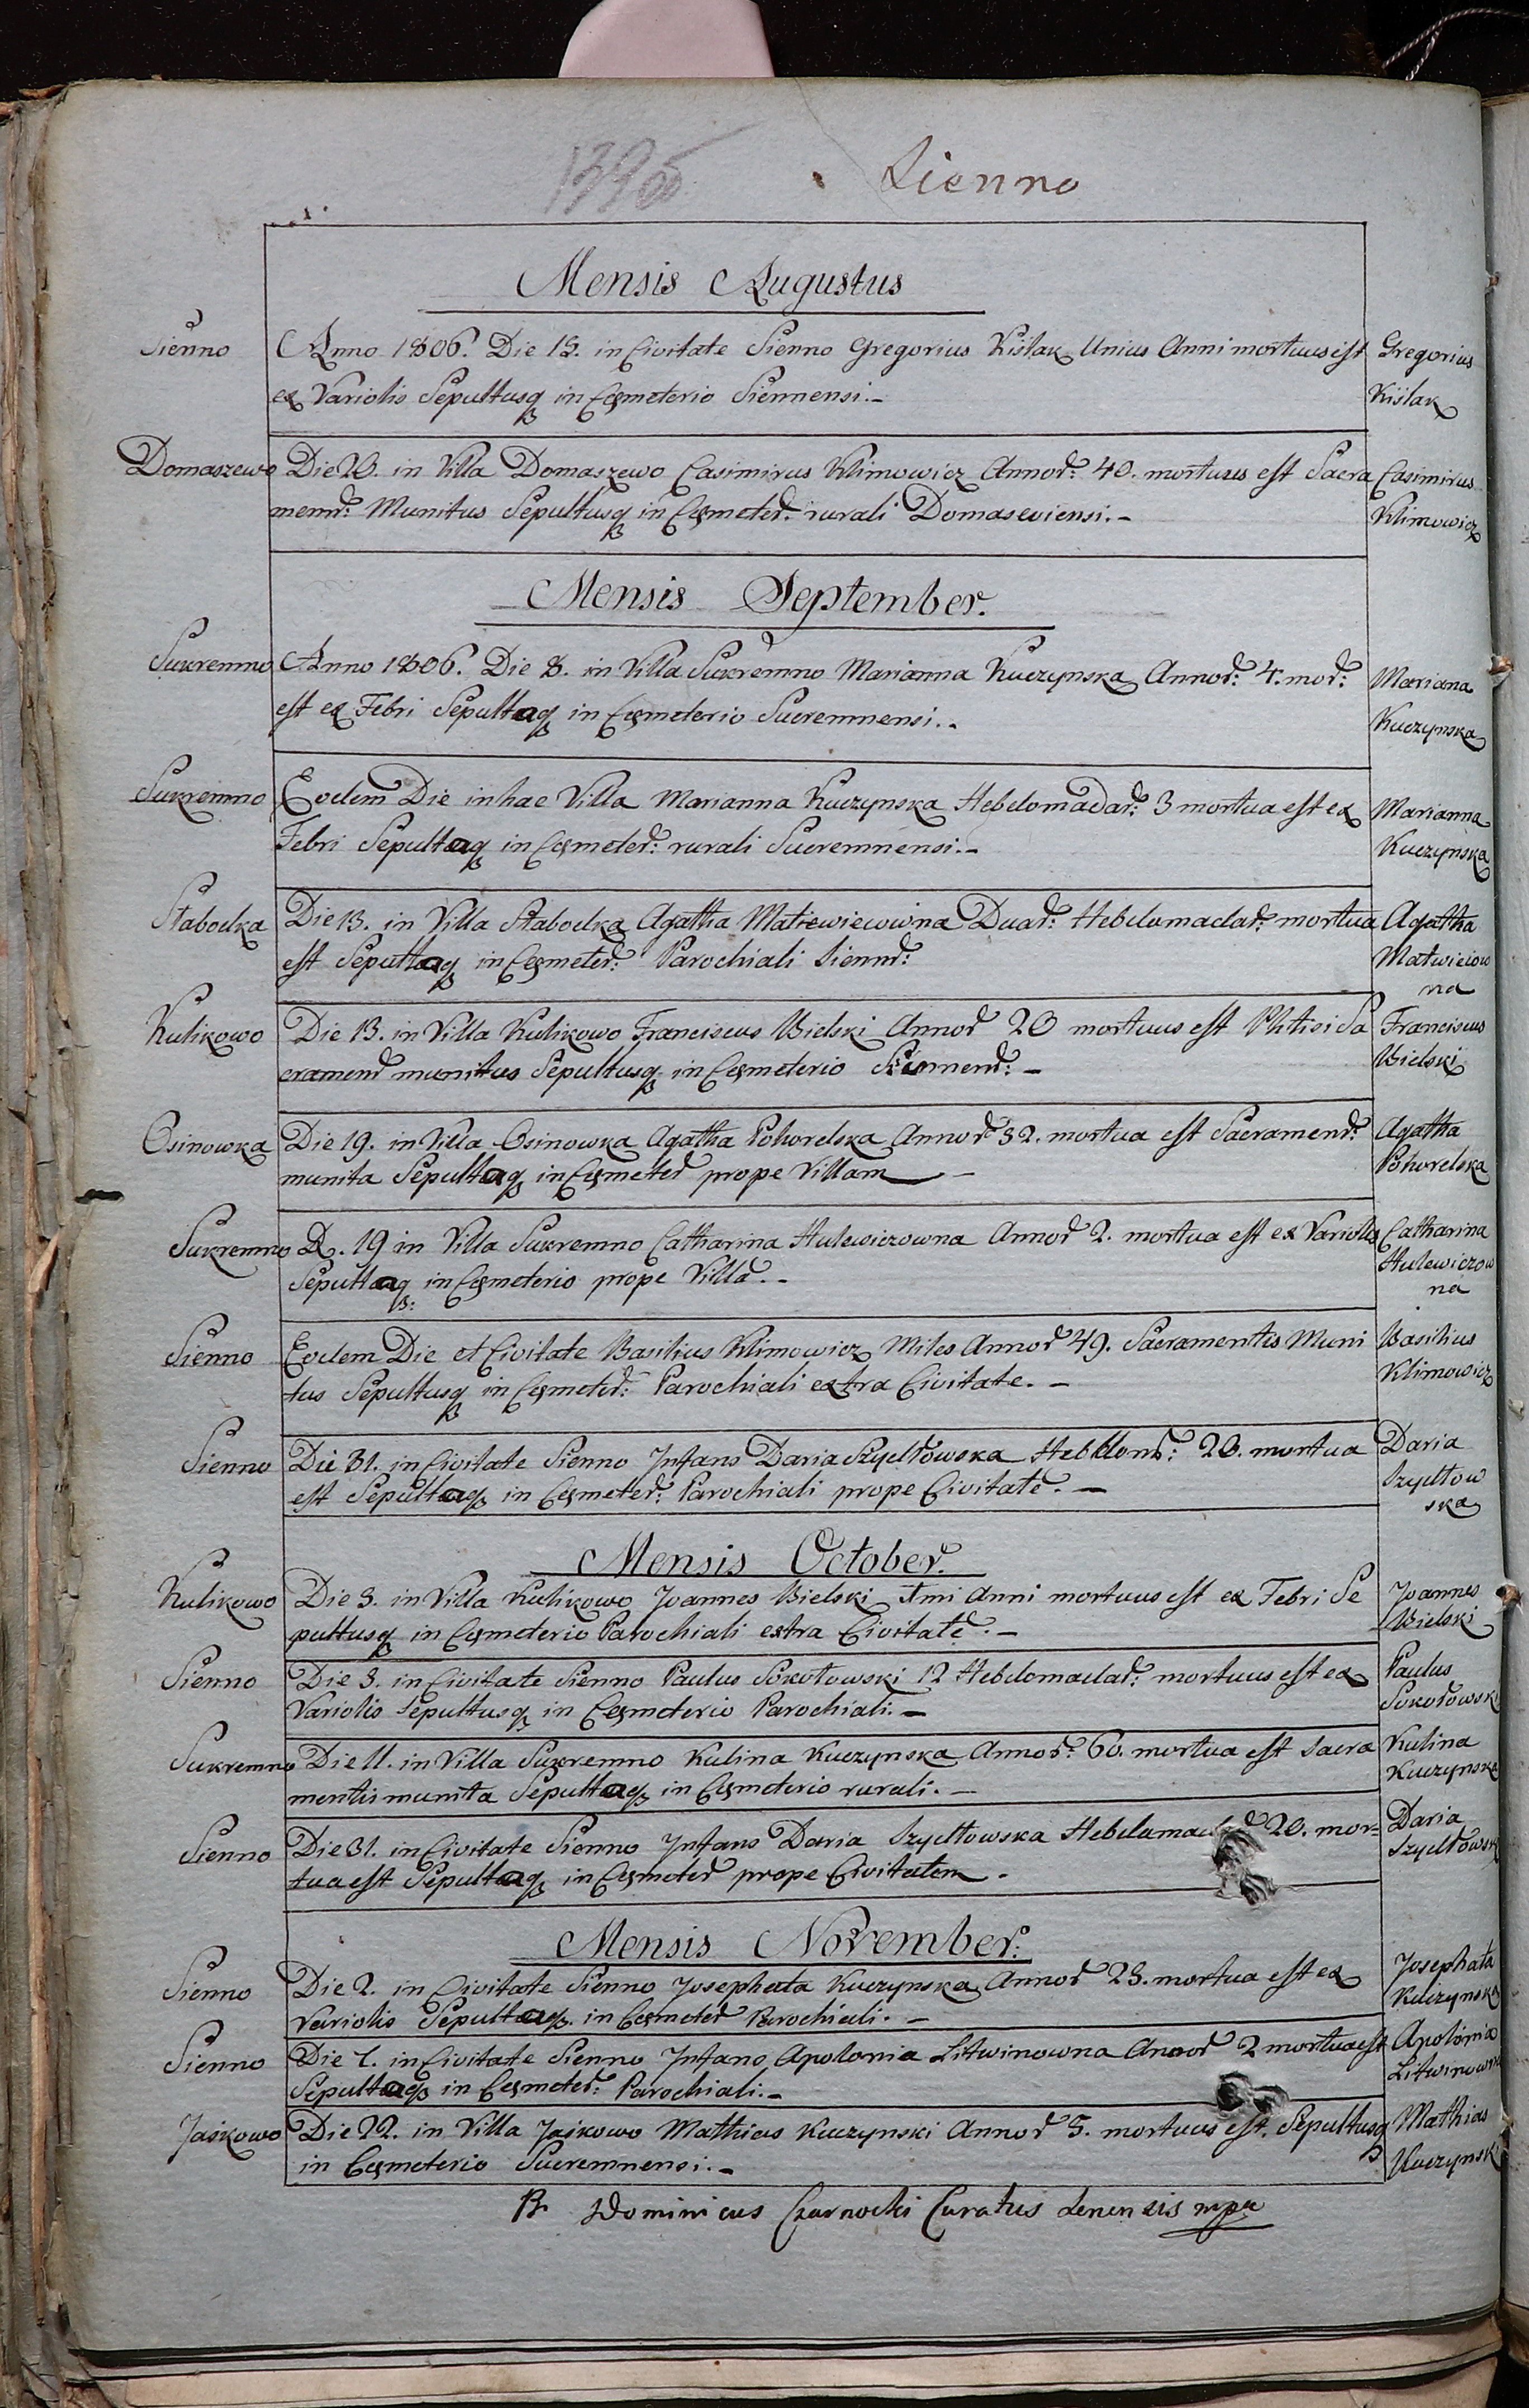 Sienno
Mensis Augustus
Sienno
Anno 1806. Die 15. in Civitate Sienno Gregorius Kislak Unius Anni mortuus est
ex Variolis Sepultusq in Cæmeterio Siennensi.-
Gregorius
Kislak
Domaszewo
Die 20. in Villa Domaszewo Casimirus Klimowicz Annor: 40. mortuus est Sacra
mentr: Munitus Sepultusq in Cæmeter: rurali Domaseviensi.-
Casimirus
Klimowicz
Mensis September.
Sukremno
Anno 1806. Die 8. in Villa Sukremno Marianna Kuczynska Annor: 4. mor:
est ex Febri Sepultaq in Cæmeterio Sucremnensi.-
Mariana
Kuczynska
Sukremno
Eodem Die in hac Villa Marianna Kuczynska Hebdomadar: 3 mortua est ex
Febri Sepultaq in Cæmeter: rurali Sucremnensi.-
Marianna
Kuczynska
Stabodka
Die 13. in Villa Stabodka Agatha Matiewiewiwna Duar: Hebdomadar: mortua
est Sepultaq in Cæmeter: Parochiali Siennr:
Agatha
Matwieiow
na
Kulikowo
Die 13. in Villa Kulikowo Franciscus Bielski Annor 20 mortuus est Phtisi Sa
cramenr munitus Sepultusq in Cæmeterio Siennenr: -
Franciscus
Bielski
Osinowka
Die 19. in Villa Osinowka Agatha Pohorelska Annor 32. mortua est Sacramenr:
munita Sepultaq in Cæmeter prope Villam -
Agatha
Pohorelska
Sukremno
D. 19 in Villa Sukremno Catharina Hulewiczowna Annor 2. mortua est ex Variolis
Sepultaq in Cæmeterio prope Villa.-
Catharina
Hulewiczow
na
Sienno
Eodem Die et Civitate Basilius Klimowicz Miles Annor 49. Sacramentis Muni
tus Sepultusq in Cæmeter: Parochiali extra Civitate. -
Basilius
Klimowicz
Sienno
Die 31. in Civitate Sienno Infans Daria Szydłowska 20. mortua
est Sepultaq in Cæmeter: Parochiali prope Civitate. -
Daria
Szydłow
ska
Mensis October.
Kulikowo
Die 3. in Villa Kulikowo Joannes Bielski Anni mortuus est ex Febri Se
pultusq in Cæmeterio Parochiali extra Civitate.-
Joannes
Bielski
Sienno
Die 3. in Civitate Sienno Paulus Sokołowski 12 Hebdomadar: mortuus est ex
Variolis Sepultusq in Cæmeterio Parochiali.-
Paulus
Sokołowski
Sukremno
Die 11. in Villa Sukremno Kulina Kuczynska Annor: 60. mortua est Sacra
mentis munita Sepultaq in Cæmeterio rurali.-
Kulina
Kuczynska
Sienno
Die 31. in Civitate Sienno Infans Daria Szydłowska 20. mor=
tua est Sepultaq in Cæmeter prope Civitatem.
Daria
Szydłowsk
Mensis November:
Sienno
Die 2. in Civitate Sienno Josephata Kuczynska Annor 23. mortua est ex
Variolis Sepultaq. in Cæmeter Parochiali. -
Josephata
Kuczynska
Sienno
Die 7. in Civitate Sienno Infans Apolonia Litwinowna Annor 2 mortua est
Sepultaq in Cæmeter: Parochiali.-
Apolonia
Litwinowna
Jaśkowo
Die 22. in Villa Jaśkowo Mathias Kuczynski Annor 5. mortuus est. Sepultusq
in Cæmeterio Sucremnensi.-
Mathias
Kuczynski
Dominicus Czarnocki Curatus mpa